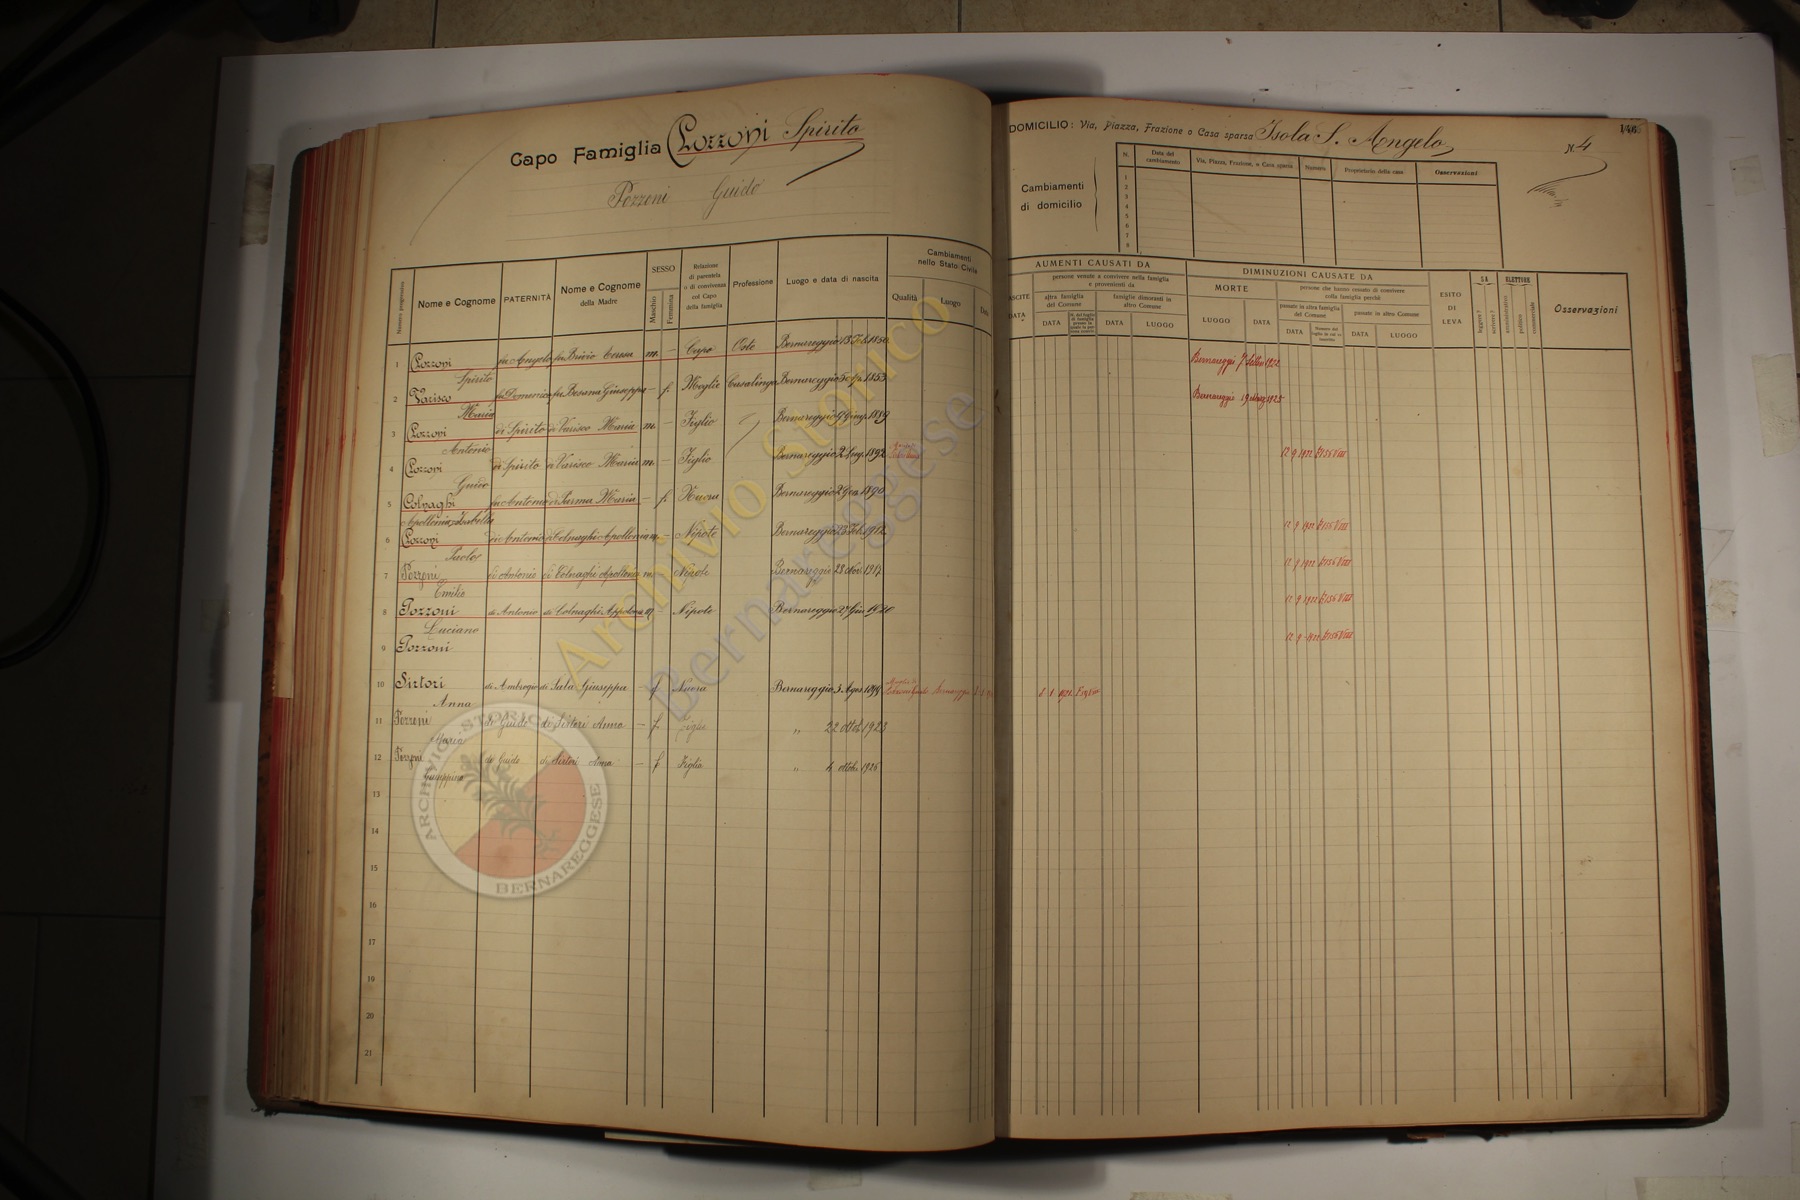 Capo Famiglia Pozzoni Spirito
Pozzoni Guido
Numero progressivo
Nome e Cognome
PATERNITÀ
Nome e Cognome della Madre
SESSO
Maschio
Femmina
Relazione di parentela o di convivenza col Capo della famiglia
Professione
Luogo e data di nascita
Cambiamenti nello Stato Civile
Qualità
Luogo
Data
1 Pozzoni Spirito fu Angelo fu Brivio Teresa m. – Capo Oste Bernareggio 18 Feb. 1850
2 Varisco Maria fu Domenico fu Besana Giuseppa – f. Moglie Casalinga Bernareggio 1853
3 Pozzoni Antonio di Spirito di Varisco Maria m. – Figlio Bernareggio Giug. 1889
4 Pozzoni Guido di Spirito di Varisco Maria m. – Figlio Bernareggio 2 1892
5 Colnaghi Apollonia Isabella fu Antonio di Parma Maria – f. Nuora Bernareggio 2 Gen. 1890
6 Pozzoni Paolo di Antonio di Colnaghi Apollonia m. – Nipote Bernareggio 23 Feb. 1912
7 Pozzoni Emilio di Antonio di Colnaghi Apollonia m. – Nipote Bernareggio 28 Nov. 1917
8 Pozzoni Luciano di Antonio di Colnaghi Appolonia m – Nipote Bernareggio 27 Giu 1920
9 Pozzoni
10 Sirtori Anna di Ambrogio di Sala Giuseppa – f Nuora Bernareggio 5 Agos 1899 Moglie di Pozzoni Guido Bernareggio
11 Pozzoni Maria di Guido di Sirtori Anna – f. Figlia " 22 ottob. 1923
12 Pozzoni Giuseppina di Guido di Sirtori Anna – f Figlia " 4 ottob. 1926
13
14
15
16
17
18
19
20
21
DOMICILIO: Via, Piazza, Frazione o Casa sparsa Isola S. Angelo N. 4
146
Cambiamenti di domicilio
N.
Data del cambiamento
Via, Piazza, Frazione, o Casa sparsa
Numero
Proprietario della casa
Osservazioni
1
2
3
4
5
6
7
8
AUMENTI CAUSATI DA
NASCITE
DATA
persone venute a convivere nella famiglia e provenienti da
altra famiglia del Comune
famiglie dimoranti in altro Comune
DATA
DATA
LUOGO
DIMINUZIONI CAUSATE DA
MORTE
LUOGO
DATA
persone che hanno cessato di convivere colla famiglia perchè
passate in altra famiglia del Comune
passate in altro Comune
DATA
DATA
LUOGO
ESITO DI LEVA
SA
leggere?
scrivere?
ELETTORE
amministrativo
politico
commerciale
Osservazioni
Bernareggio 7 Settem 1922
Bernareggio 19 Marz 1925
12 9 1922 156 VIII
12 9 1922 156 VIII
12 9 1922 156 VIII
12 9 1922 156 VIII
12 9 1922 156 VIII
Archivio Storico
Bernareggese
ARCHIVIO STORICO
BERNAREGGESE